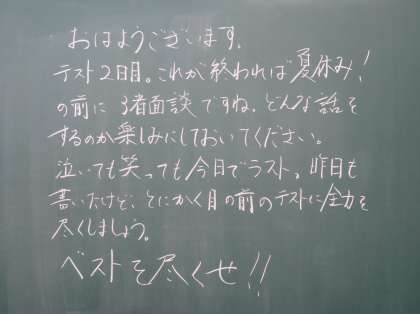 おはようございます。
テスト2日目。これが終われば夏休み!
の前に3者面談ですね。どんな話を
するのか楽しみにしておいてください。
泣いても笑っても今日でラスト。昨日も
書いたけど、とにかく目の前のテストに全力を
尽くしましょう。
ベストを尽くせ!!